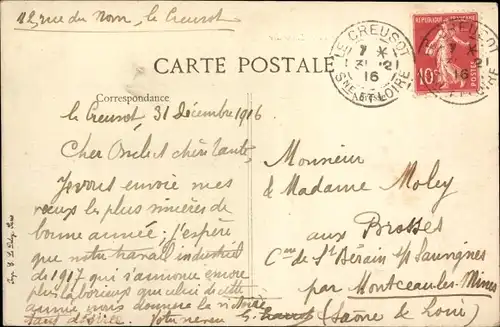 12, rue du Nord, le Creusot
LE CREUSOT
7 *
31 -12
16
SNE-ET-LOIRE
RÉPUBLIQUE FRANÇAISE
10
CARTE POSTALE
Correspondance
le Creusot, 31 Décembre 1916
Cher Oncle et chère tante,
Je vous envoie mes
vœux les plus sincères de
bonne année ; j'espère
que notre travail industriel
de 1917 qui s'annonce encore
plus laborieux que celui de cette
année nous donnera la victoire
tant désirée. Votre neveu
Monsieur
& Madame Moley
aux Brosses
Cne de St Bérain s/s Sanvignes
par Montceau-les-Mines
(Saône & Loire)